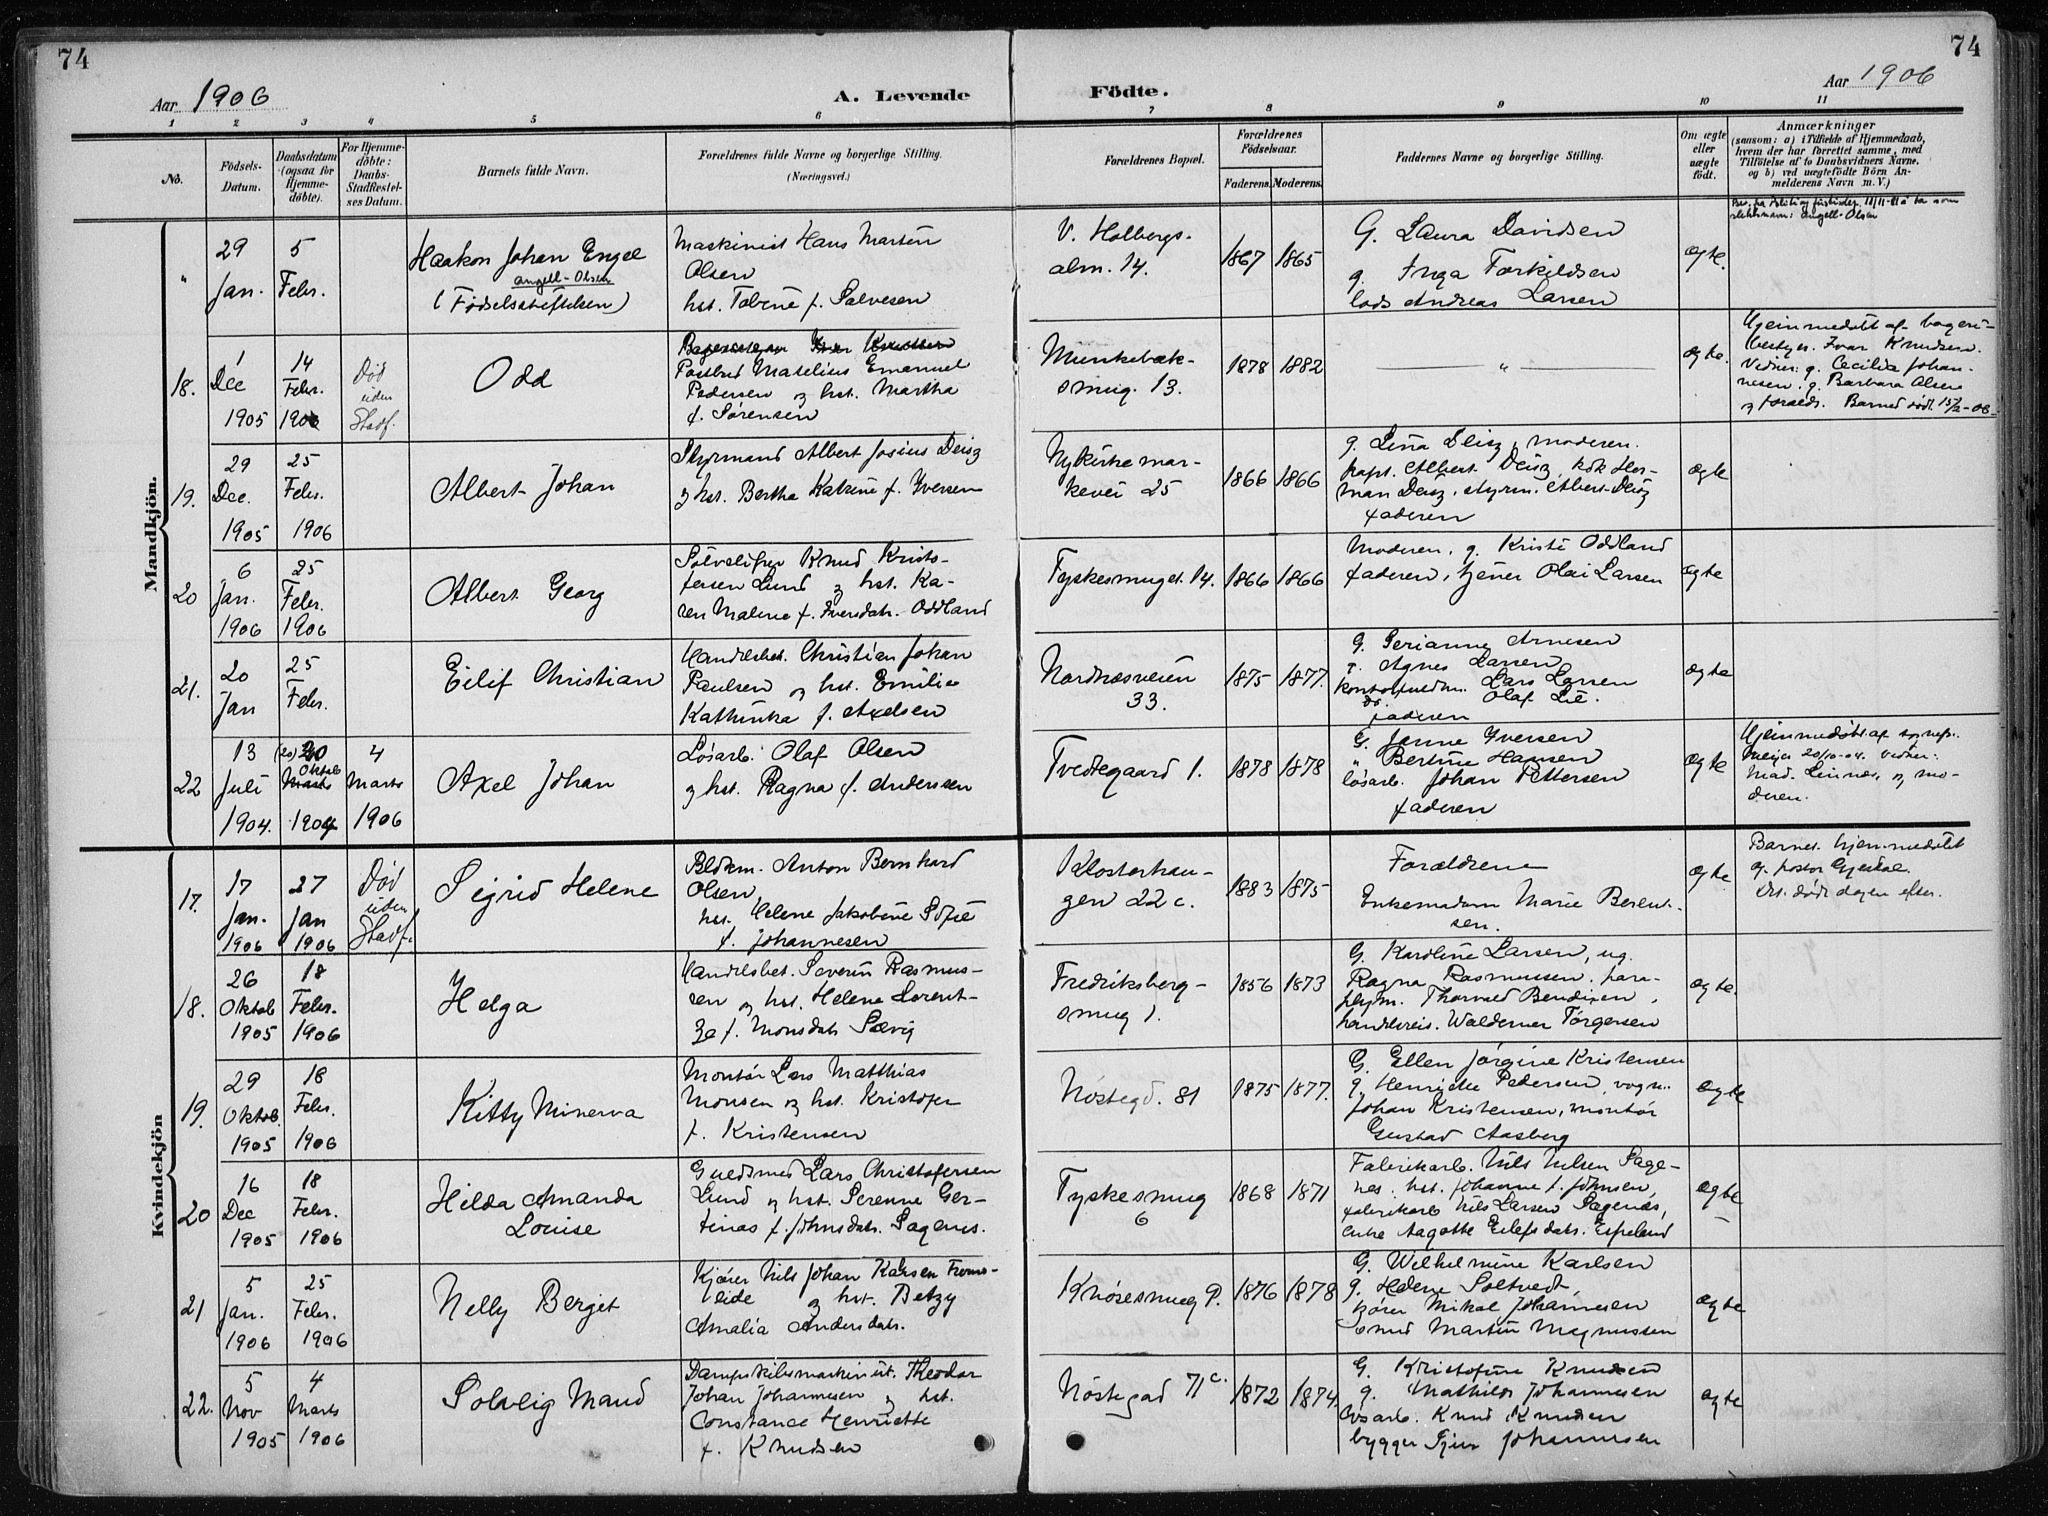 74
74
Aar 1906
A. Levende
Födte.
Aar 1906
1 2 3 4 5 6 7 8 9 10 11
No.
Födsels-
Datum.
Daabsdatum
(ogsaa for
Hjemme-
døbte).
For Hjemme-
døbte:
Daabs-
Stadfæstel-
ses Datum.
Barnets fulde Navn.
Forældrenes fulde Navne og borgerlige Stilling.
(Næringsvei.)
Forældrenes Bopæl.
Forældrenes
Fødselsaar.
Faderens. Moderens.
Faddernes Navne og borgerlige Stilling.
Om ægte
eller
uægte
født.
Anmærkninger
(saasom: a) i Tilfælde af Hjemmedaab,
hvem der har forrettet samme, med
Tilføielse af to Daabsvidners Navne.
og b) ved uægtefødte Börn An-
melderens Navn m. V.)
Mandkjön.
"
29
Jan.
5
Febr.
Haakon Johan Engel
Angell-Olsen
(Fødselsstiftelsen)
Maskinist Hans Martin
Olsen
hst. Tobine f. Salvesen
V. Holbergs-
alm. 14.
1867 1865
G. Laura Davidsen
g. Inga Torkildsen
lods Andreas Larsen
ægte.
slektsnavn: Angell-Olsen
18.
1
Dec
1905
14
Febr.
1906
Død
uden
Stadf.
Odd
Postbud Matelius Emanuel
Pedersen og hst. Martha
f. Sørensen
Munkebæk-
smug. 13.
1878 1882
"
ægte.
Hjemmedøbt af bageri-
bestyr. Ivar Knudsen.
Vidner: g. Cecilia Johan-
nesen, g. Barbara Olsen
og forældr. Barnet død 15/2-06-
19.
29
Dec.
1905
25
Febr.
1906
Albert Johan
Styrmand Albert Josius Deisz
og hst. Bertha Katrine f. Iversen
Nykirkemar-
kevei 25
1866 1866
g. Lina Deisz, moderen.
kapt. Albert Deisz, kok Her-
man Deisz, styrm. Albert Deisz
faderen
ægte
20
6
Jan.
1906
25
Febr.
1906
Albert Georg
Knud Kristo-
fersen Lund og hst. Ka-
ren Malene f. Iversdatr. Oddland
Tyskesmuget. 14.
1866 1866
Moderen, g. Kristi Oddland
faderen, tjener Olai Larsen
ægte
21.
20
Jan
25
Febr.
Eilif Christian
Handelsbet. Christian Johan
Paulsen og hst. Emilie
Kathinka f. Axelsen
Nordnæsveien
33.
1875 1877.
G. Serianne Arnesen
g. Agnes Larsen
Lars Larsen
do. Olaf Lie.
faderen
ægte
22
13
Juli
1904.
(20) 20
Oktob
1904
4
Marts
1906
Axel Johan
Løsarb. Olaf Olsen
og hst. Ragna f. Anderssen
Tvedtegaard 1.
1878 1878
G. Jenne Iversen
" Bertine Hansen
løsarb. Johan Pettersen
faderen
ægte
Hjemmedøbt af sognepr.
Meyer 20/10-04. Vidner:
Mad. Linnæs, og mo-
deren.
Kvindekjön
17.
17
Jan.
1906
27
Jan
1906
Død
uden
Stadf.
Sigrid Helene
Blikm. Anton Bernhard
Olsen
hst. Helene Jakobine Sofie
f. Johannesen
Klosterhau-
gen 22 c.
1883 1875
Forældrene
Enkemadam Marie Berent-
sen.
ægte
Barnet hjemmedøbt
af pastor Gjesdal.
Det døde dagen efter.
18.
26
Oktob
1905
18
Febr.
1906
Helga
Handelsbet. Severin Rasmus-
sen og hst. Helene Lorent-
ze f. Monsdatr. Sævig
Fredriksberg-
smug 1.
1856 1873
G. Karoline Larsen, ug.
Ragna Rasmussen. para-
plym. Thorvald Bendixen,
handelsreis. Waldemer Torgersen
ægte.
19.
29
Oktob.
1905
18
Febr.
1906
Kitty Minerva
Montør Lars Matthias
Monsen og hst. Kristofa
f. Kristensen
Nøstegd. 81
1875 1877.
G. Ellen Jørgine Kristensen
g. Henricke Pedersen, vogn.
Johan Kristensen, montør
Gustad Aasberg
ægte
20
16
Dec
1905
18
Febr.
1906
Hilda Amanda
Louise
Guldsmed Lars Christofersen
Lund og hst. Serenne Ger-
tinas f. Johnsdatr. Sagenes.
Tyskesmug
6
1868 1871
Fabrikarb. Nils Nilsen Sage-
nes. hst. Johanne f. Johnsen,
fabrikarb Nils Larsen Sagenes,
enke Aagotte Eilefsdatr. Espeland
ægte
21
5
Jan.
1906
25
Febr.
1906
Nelly Berget
Kjører Nils Johan Karsen Froms-
eide og hst. Betzy
Amalia Andersdatr.
Knøsesmug 9.
1876 1878
G. Wilhelmine Karlsen
g. Helene Soltvedt,
kjører Mikal Johannesen
smed Martin Magnussen
ægte
22.
5
Nov
1905
4
Marts
1906
Solveig Maud
Dampskibsmaskinist. Theodor
Johan Johannesen og hst.
Constance Henriette
f. Knudsen
Nøstegad 71c.
1872 1874.
G. Kristofine Knudsen
g. Mathilde Johannesen
løsarb. Knud Knudsen
bygger Johannesen
ægte